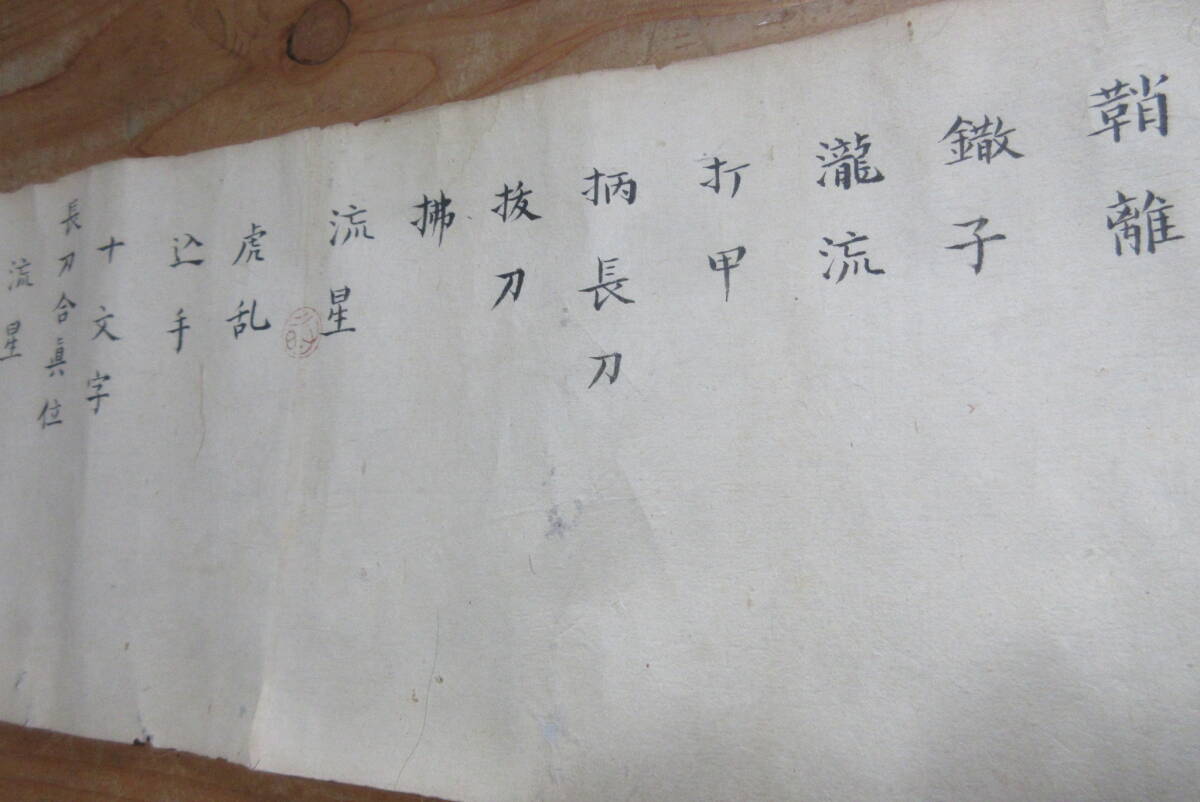 鞘離
鏾子
瀧流
打甲
抦長刀
抜刀
拂
流星
虎乱
込手
十文字
長刀合眞位
流星